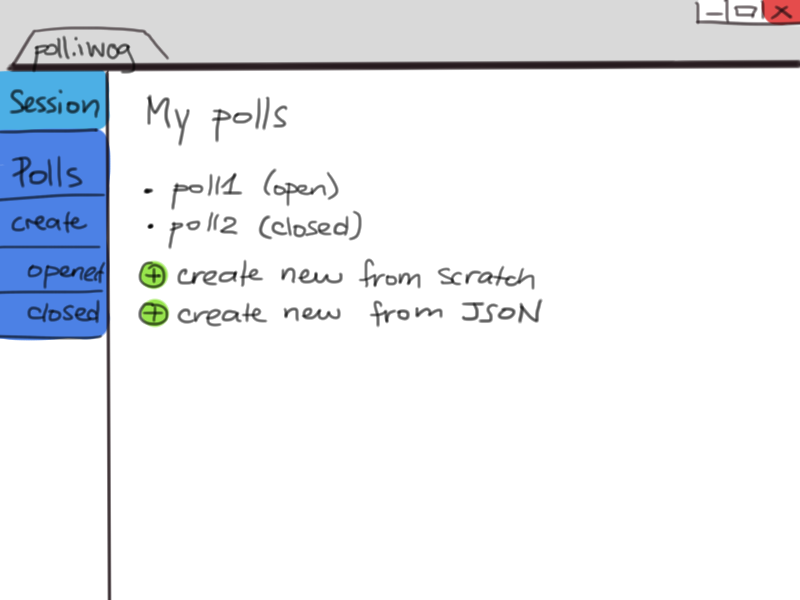 poll.iwog
Session
Polls
create
opened
closed
My polls
• poll1 (open)
• poll2 (closed)
+ create new from scratch
+ create new from JSON